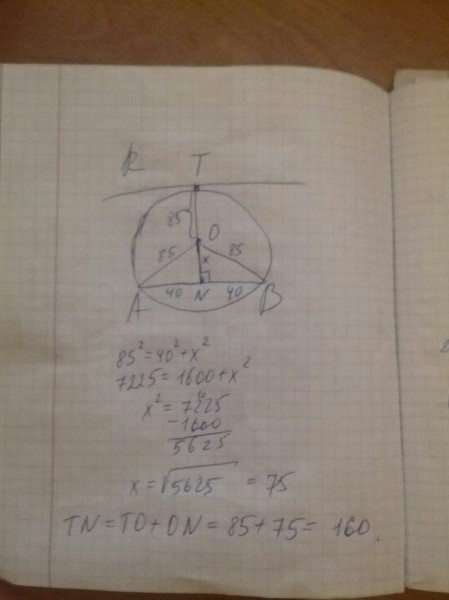 R T
85
O
85 85
x
A 40 N 40 B
85² = 40² + x²
7225 = 1600 + x²
x² = 7225
− 1600
5625
x = √5625 = 75
TN = TO + ON = 85 + 75 = 160.